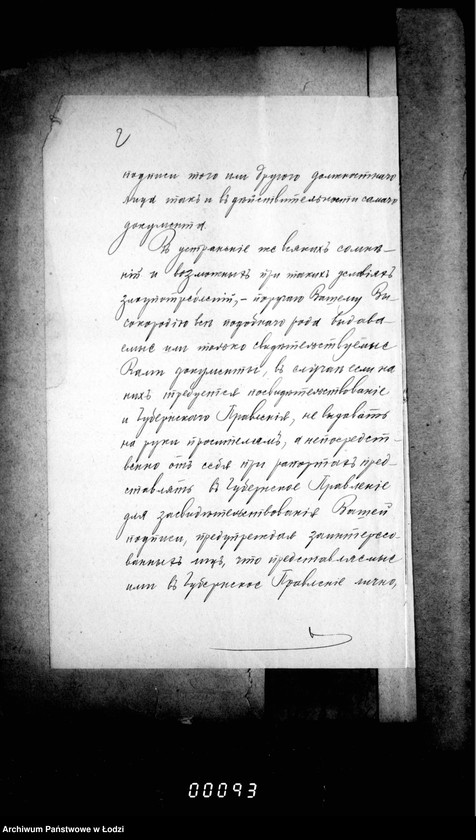 2
подписи того или другого должностного
лица такъ и въ дѣйствительности самаго
документа.
Въ устраненіе же всякихъ сомнѣ-
ній и возможныхъ при такихъ условіяхъ
злоупотребленій, - поручаю Вашему Вы-
сокородію всѣ подобнаго рода выдава-
емые или только свидѣтельствуемые
Вами документы, въ случаѣ если на
нихъ требуется посвидѣтельствованіе
и Губернскаго Правленія, не выдавать
на руки просителямъ, а непосредст-
венно отъ себя при рапортахъ пред-
ставлять въ Губернское Правленіе
для засвидѣтельствованія Вашей
подписи, предупреждая заинтересо-
ванныхъ лицъ, что представляемые
ими въ Губернское Правленіе лично,
00093
Archiwum Państwowe w Łodzi